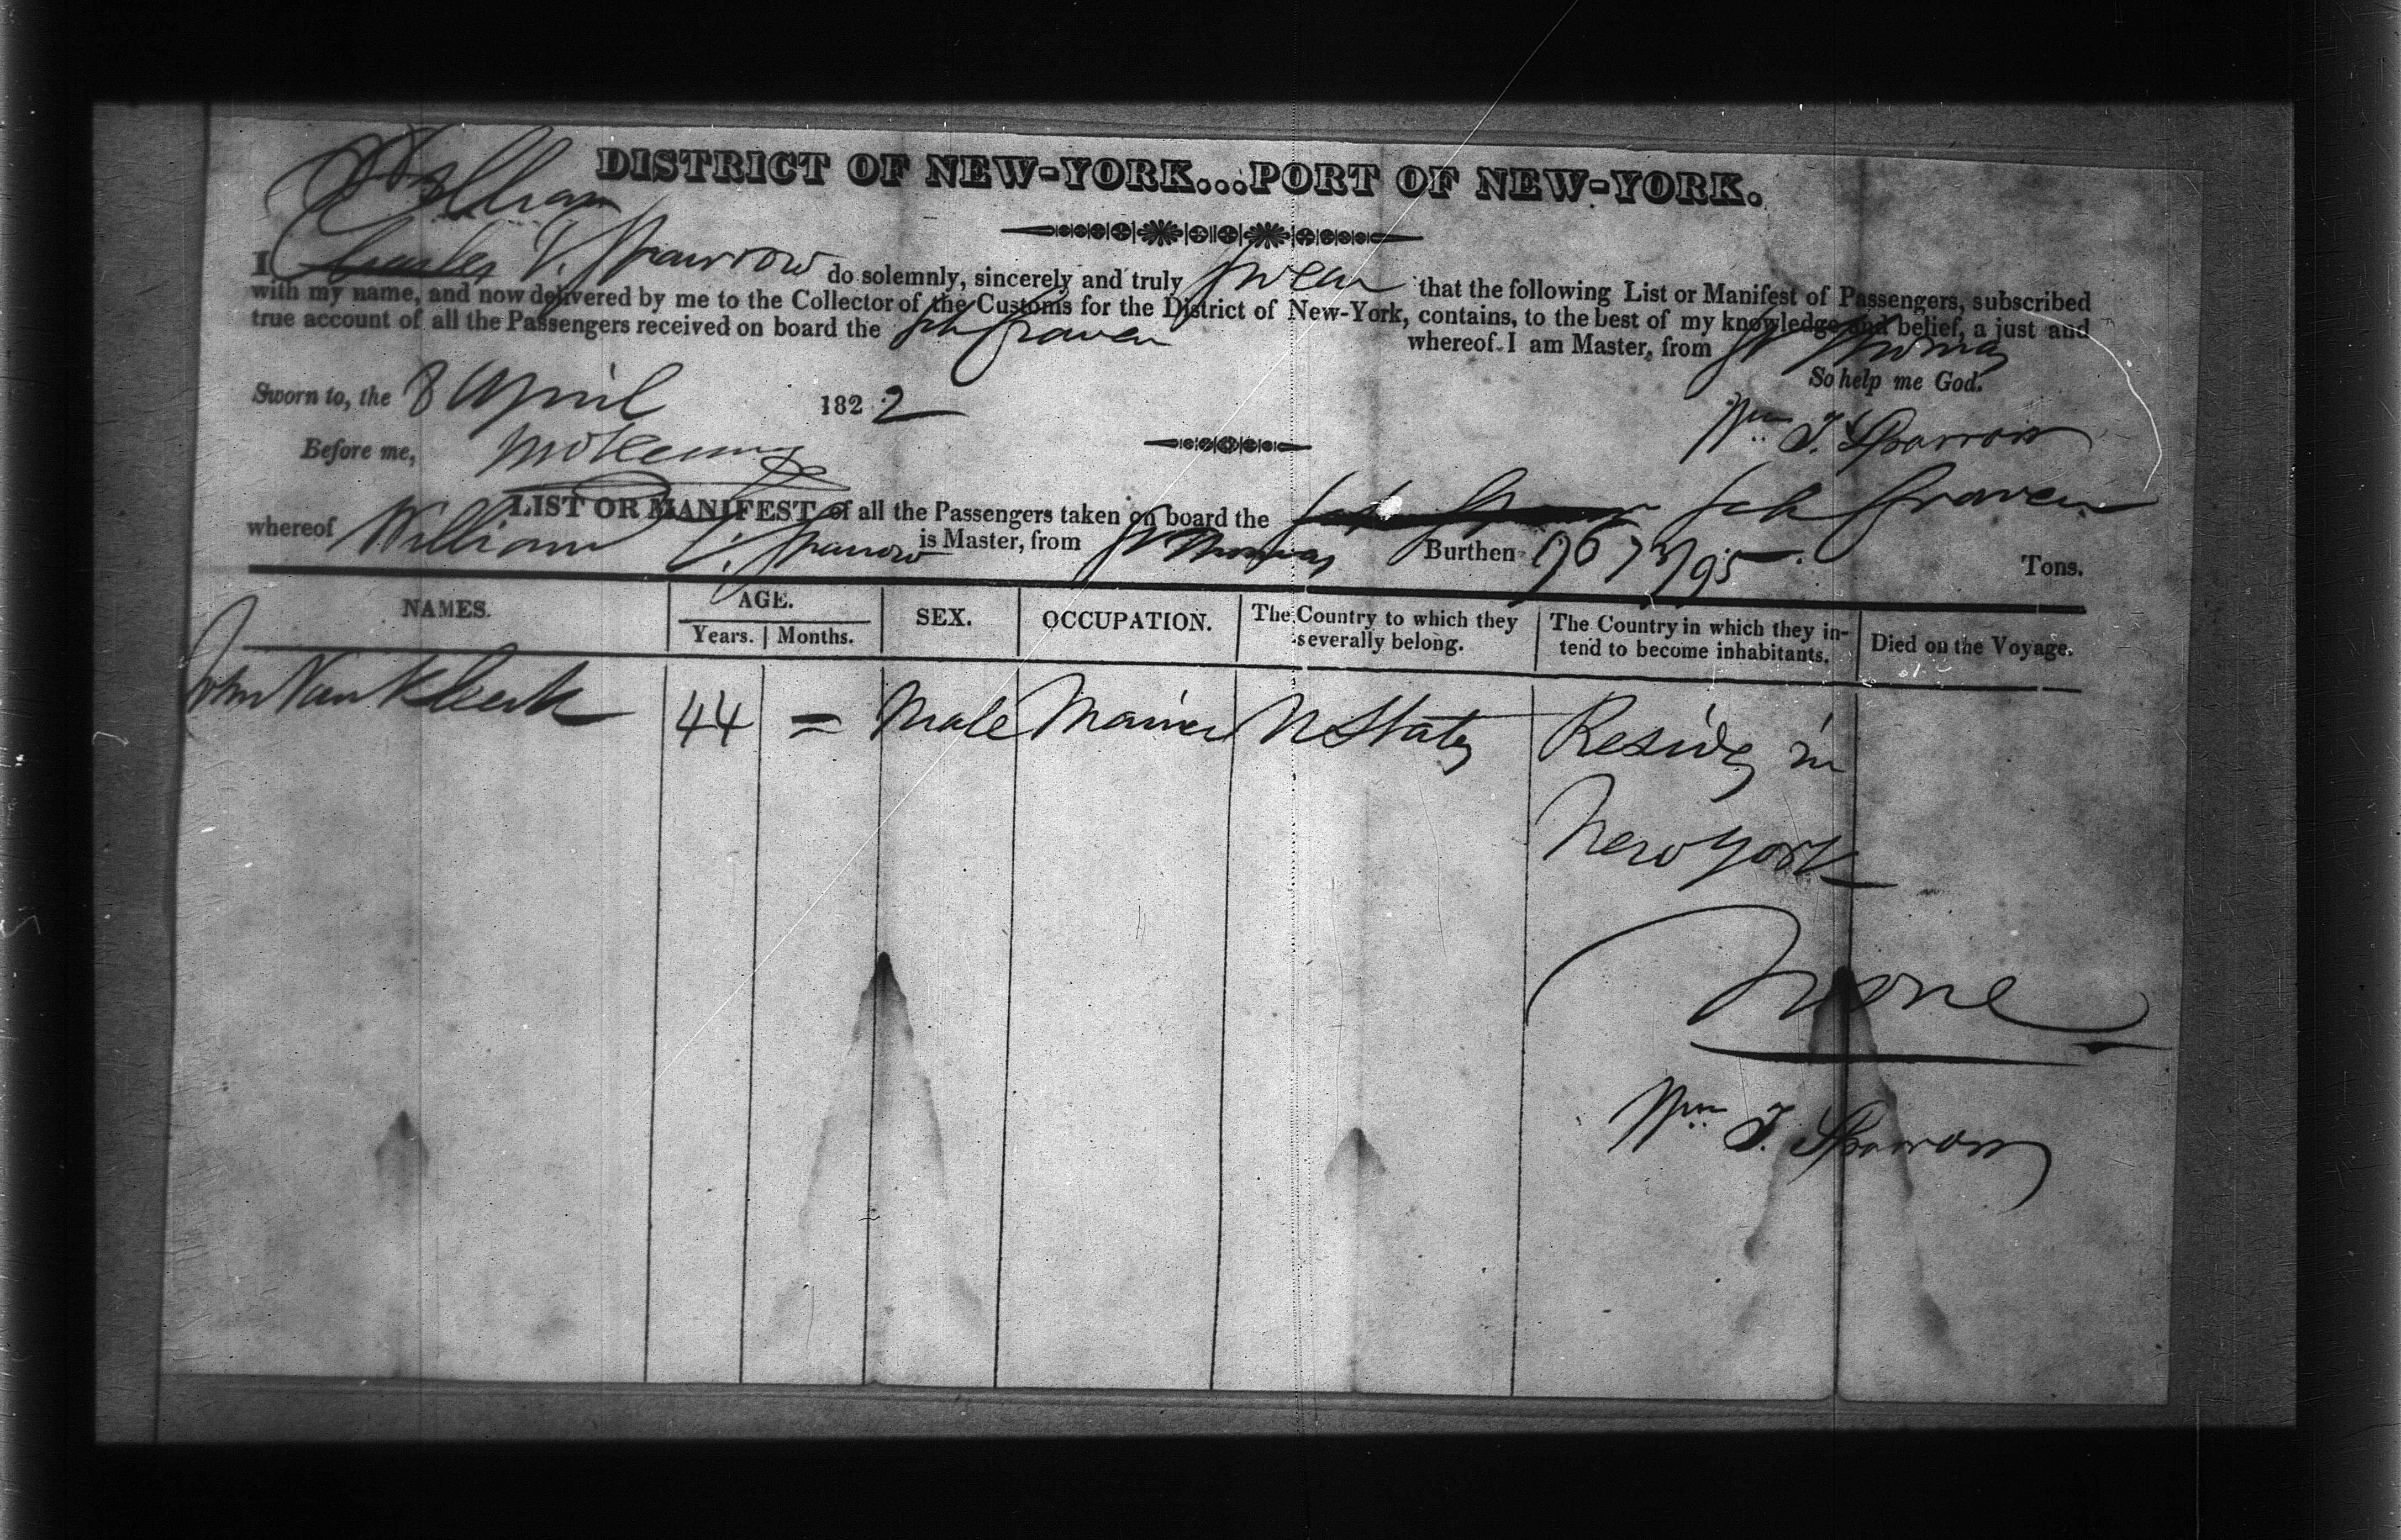 DISTRICT OF NEW-YORK...PORT OF NEW-YORK.
William
I Charles T. Sparrow do solemnly, sincerely and truly swear that the following List or Manifest of Passengers, subscribed
with my name, and now delivered by me to the Collector of the Customs for the District of New-York, contains, to the best of my knowledge and belief, a just and
true account of all the Passengers received on board the Sch whereof I am Master, from St Thomas
So help me God.
Sworn to, the 8 April 1822
Wm T. Sparrow
Before me,
LIST OR MANIFEST of all the Passengers taken on board the Sch
whereof William T. Sparrow is Master, from St Thomas Burthen Tons.
NAMES. AGE. Years. Months. SEX. OCCUPATION. The Country to which they severally belong. The Country in which they intend to become inhabitants. Died on the Voyage.
John Van Kleeck 44 = Male Mariner U States Resides in
New York
None
Wm T. Sparrow